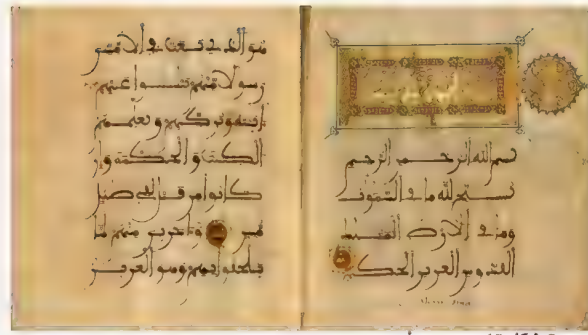 بسم الله الرحمن الرحيم
يسبح لله ما في السموات
وما في الأرض الملك
القدوس العزيز الحكيم
هو الذي بعث في الأميين
رسولا منهم يتلوا عليهم
آيته ويزكيهم ويعلمهم
الكتب والحكمة وإن
كانوا من قبل لفي ضلل
مبين وآخرين منهم لما
يلحقوا بهم وهو العزيز